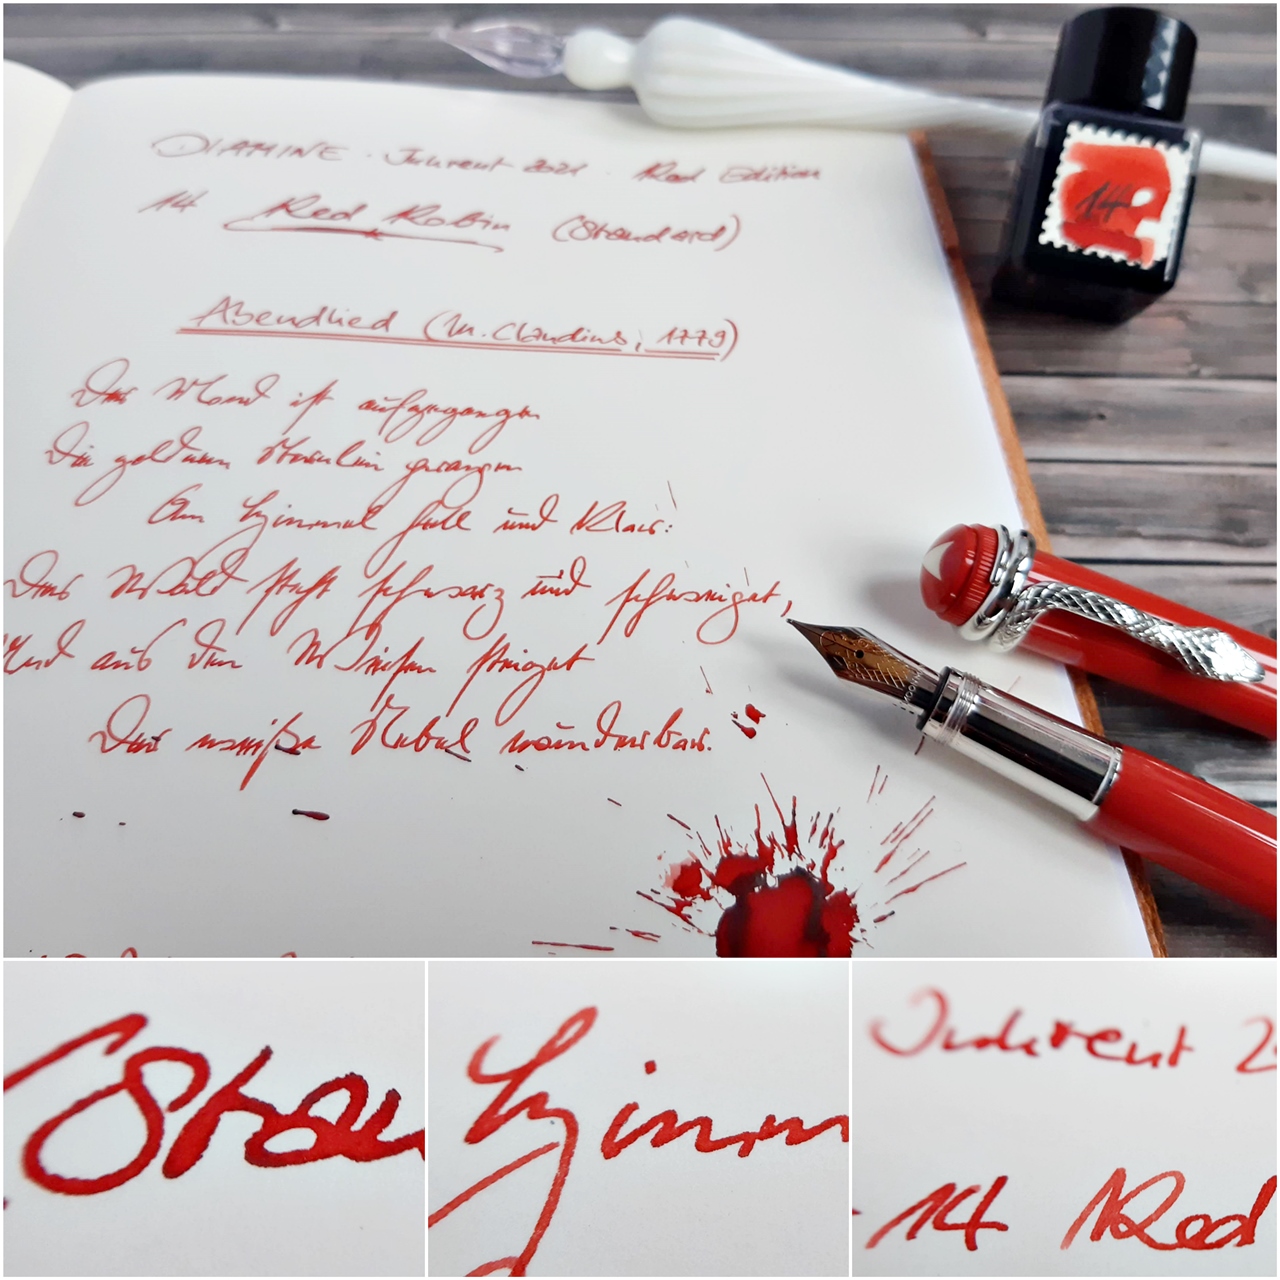 DIAMINE · Inkvent 2021 · Red Edition
14 Red Robin (Standard)
Abendlied (M. Claudius, 1779)
Der Mond ist aufgegangen
Die goldnen Sternlein prangen
Am Himmel hell und klar:
Der Wald steht schwarz und schweiget,
Und aus den Wiesen steiget
Der weiße Nebel wunderbar.
14
(Stan
Himm
Inkvent 2
14 Red